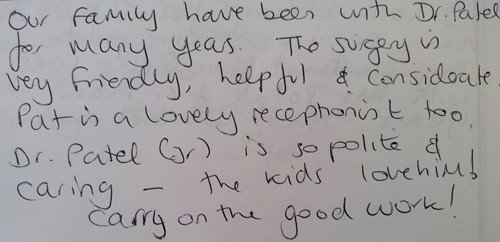 Our family have been with Dr. Patel
for many yeas. The sugery is
very friendly, helpful & considerate.
Pat is a lovely receptionist too.
Dr. Patel (Jr) is so polite &
caring – the kids love him!
Carry on the good work!